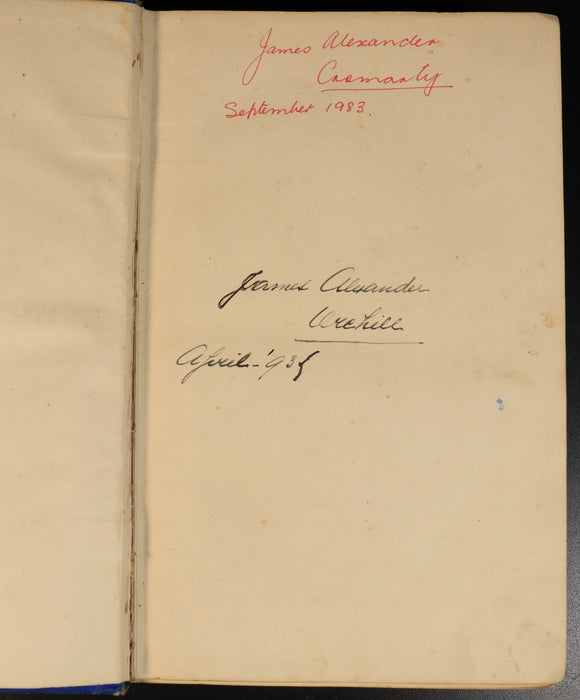 James Alexander
Cromarty
September 1983.
James Alexander
Urchill
April - 1935